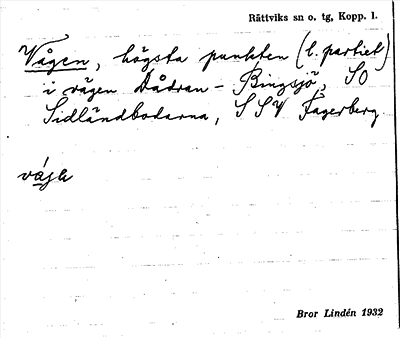 Rättviks sn o. tg, Kopp. l.
Vågen, högsta punkten (l. partiet)
i vägen Dådran - Bingsjö, SO
Sidländbodarna, SSV Fagerberg.
Bror Lindén 1932